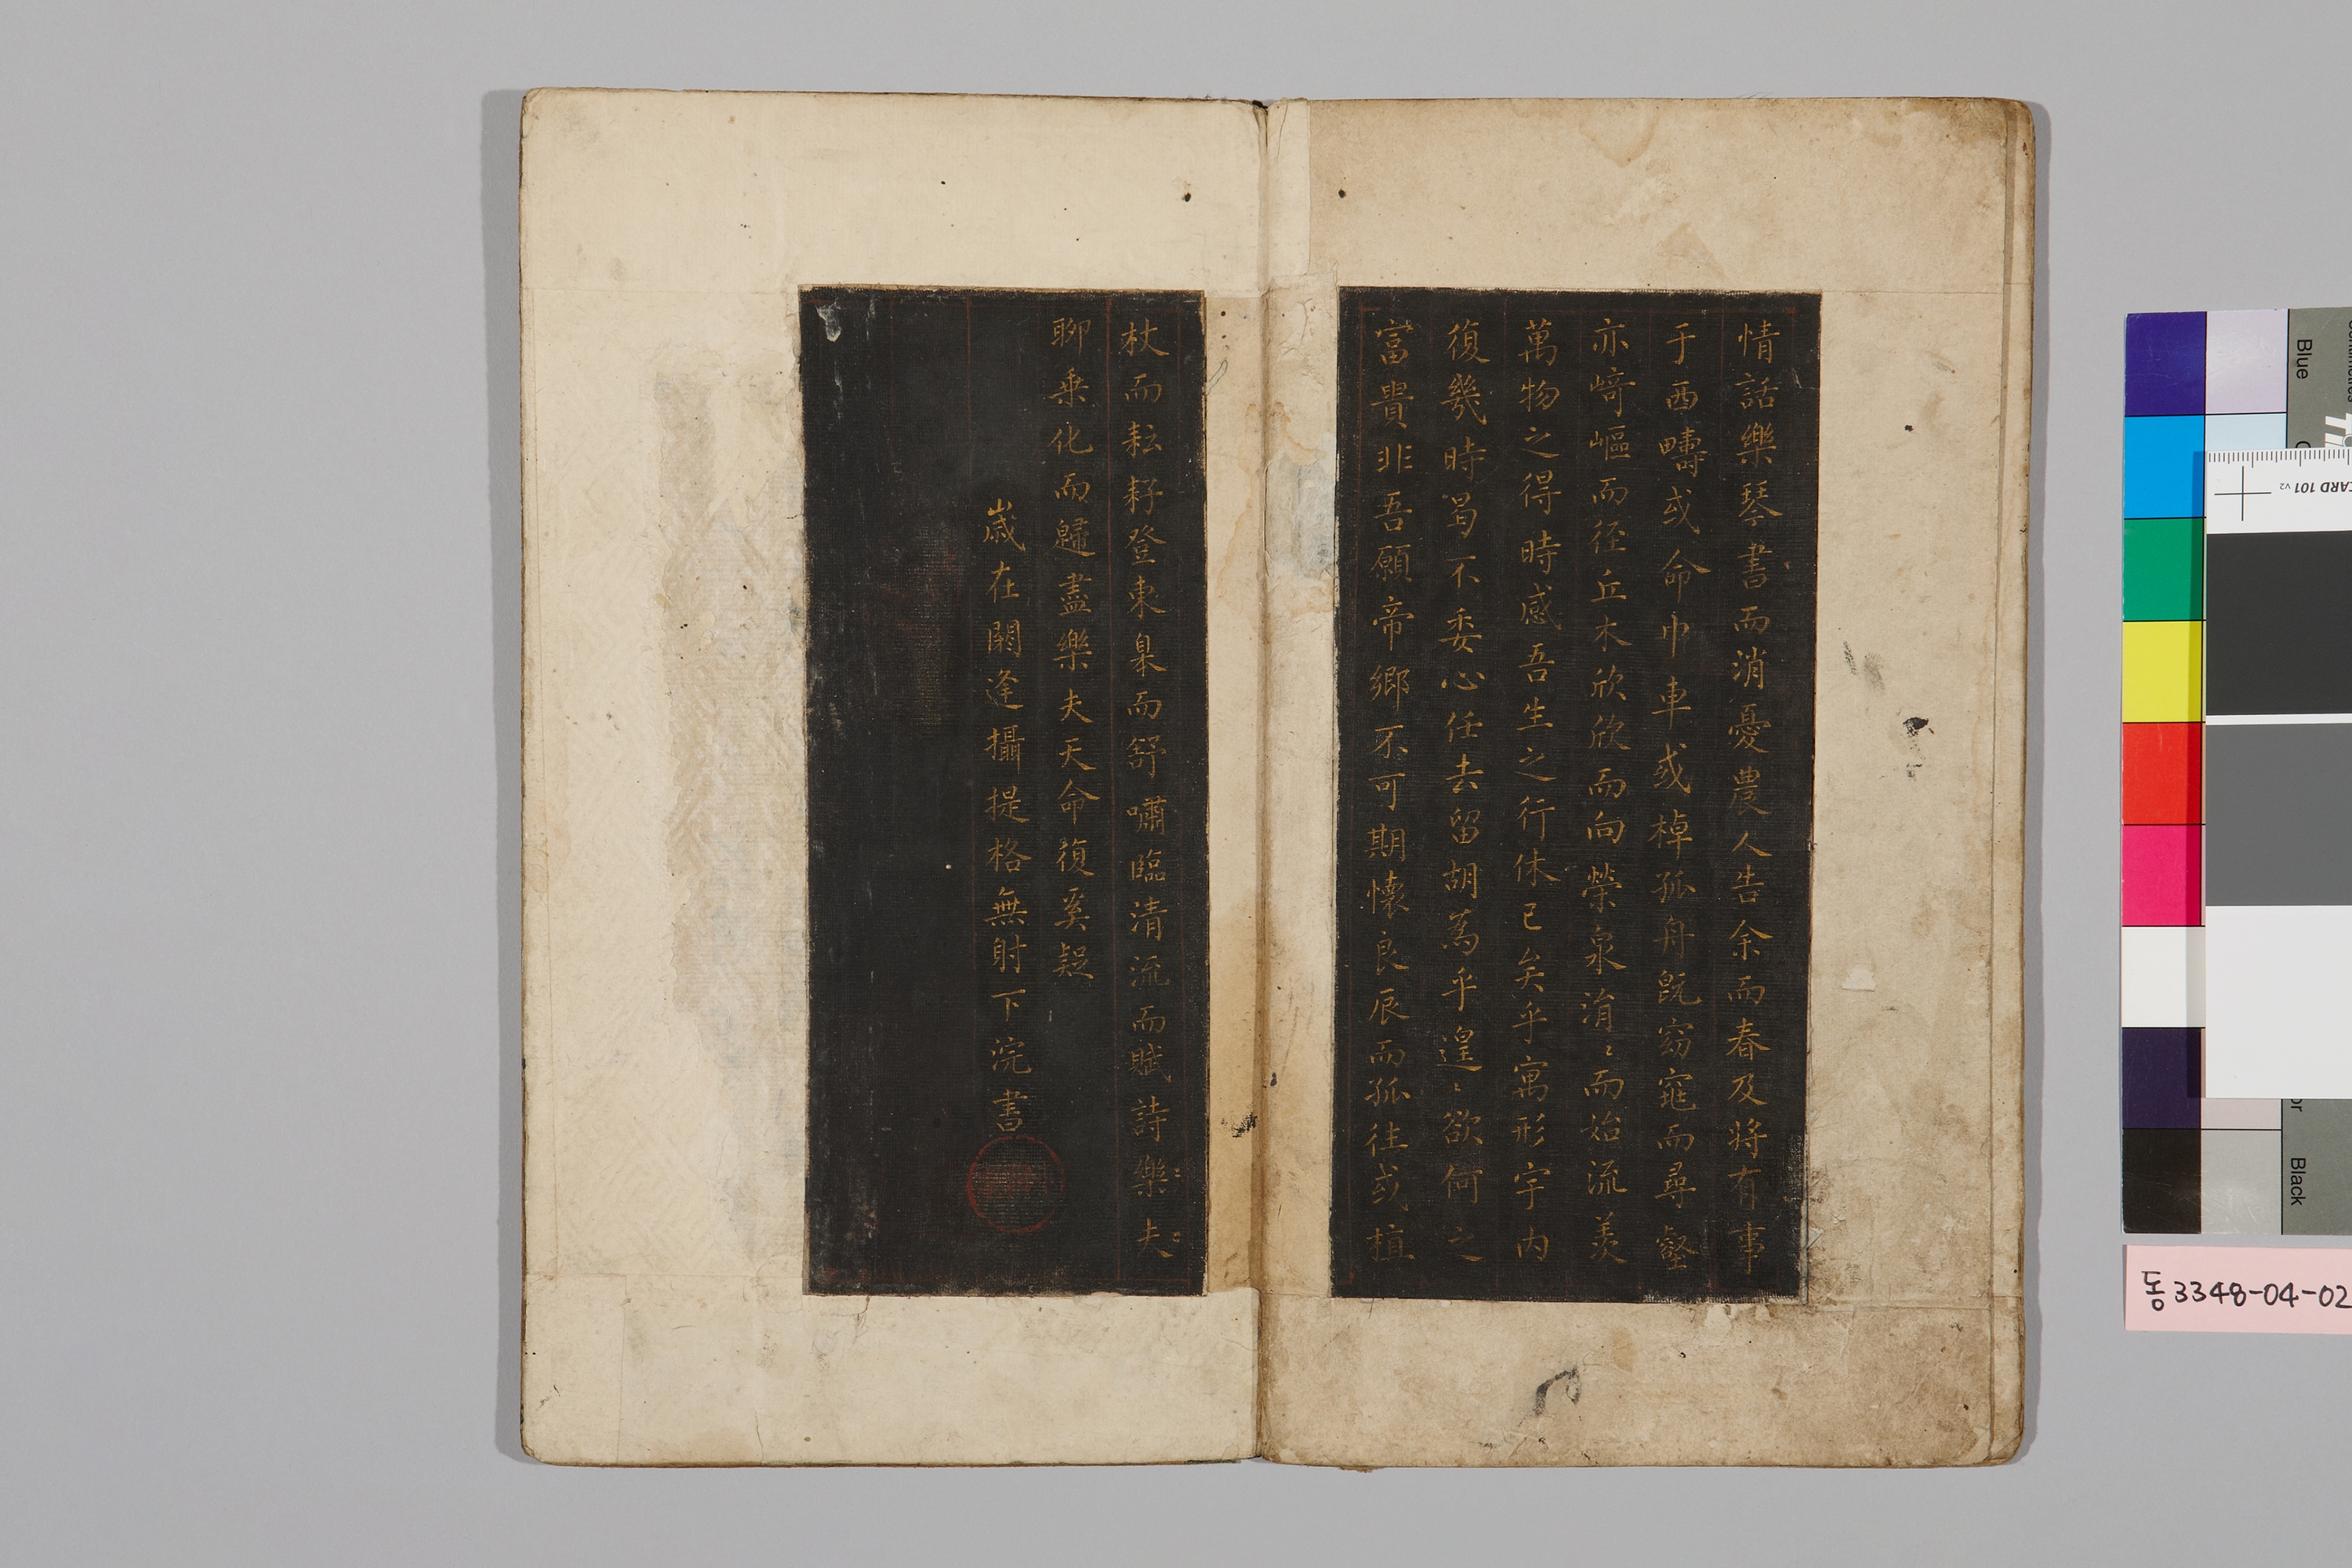 情話樂琴書而消憂農人告余而春及將有事
于西疇或命巾車或棹孤舟旣窈窕而尋壑
亦崎嶇而徑丘木欣欣而向榮泉涓〻而始流羨
萬物之得時感吾生之行休已矣乎寓形宇內
復幾時曷不委心任去留胡爲乎遑〻欲何之
富貴非吾願帝鄉不可期懷良辰而孤往或植
杖而耘耔登東皐而舒嘯臨淸流而賦詩樂夫
聊乘化而歸盡樂夫天命復奚疑
歲在閼逢攝提格無射下浣書
Blue
CARD 101 v2
Black
동3348-04-02